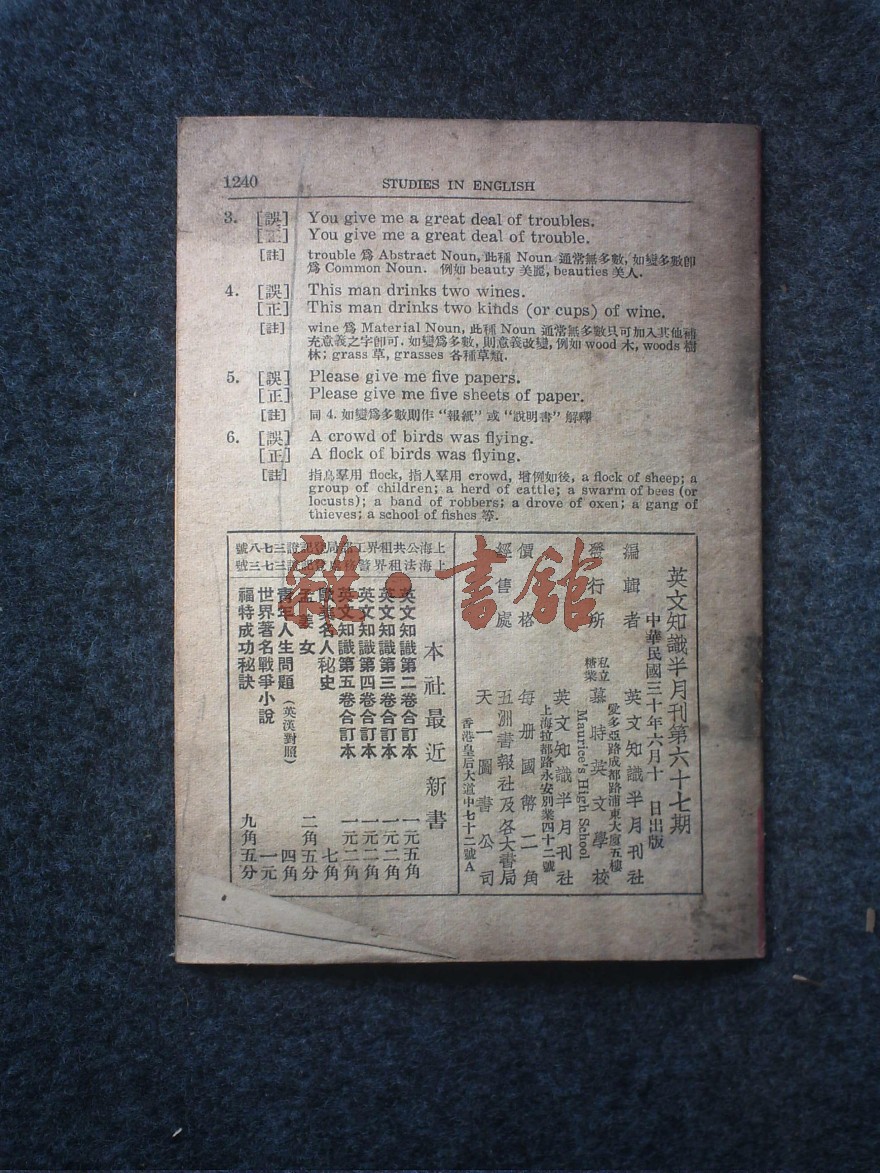 1240
STUDIES IN ENGLISH
3. [誤] You give me a great deal of troubles.
[正] You give me a great deal of trouble.
[註] trouble 爲 Abstract Noun, 此種 Noun 通常無多數, 如變多數卽
爲 Common Noun. 例如 beauty 美麗, beauties 美人.
4. [誤] This man drinks two wines.
[正] This man drinks two kinds (or cups) of wine.
[註] wine 爲 Material Noun, 此種 Noun 通常無多數只可加入其他補
充意義之字卽可. 如變爲多數, 則意義改變, 例如 wood 木, woods 樹
林; grass 草, grasses 各種草類.
5. [誤] Please give me five papers.
[正] Please give me five sheets of paper.
[註] 同 4. 如變爲多數則作 “報紙” 或 “說明書” 解釋
6. [誤] A crowd of birds was flying.
[正] A flock of birds was flying.
[註] 指鳥羣用 flock, 指人羣用 crowd, 增例如後, a flock of sheep; a
group of children; a herd of cattle; a swarm of bees (or
locusts); a band of robbers; a drove of oxen; a gang of
thieves; a school of fishes 等.
英文知識半月刊第六十七期
中華民國三十年六月十日出版
編輯者 英文知識半月刊社
愛多亞路成都路浦東大廈五樓
發行所 私立糖業慕時英文學校
Maurice's High School
英文知識半月刊社
上海拉都路永安別業四十二號
價格 每册國幣二角
經售處 五洲書報社及各大書局
天一圖書公司
香港皇后大道中七十二號A
上海公共租界工部局登記證三七八號
上海法租界警務處登記證三七三號
本社最近新書
英文知識第二卷合訂本 一元五角
英文知識第三卷合訂本 一元二角
英文知識第四卷合訂本 一元二角
英文知識第五卷合訂本 一元二角
歐美名人秘史 七角
孟姜女 二角五分
青年人生問題(英漢對照) 四角
世界著名戰爭小說 一元
福特成功秘訣 九角五分
雜·書館